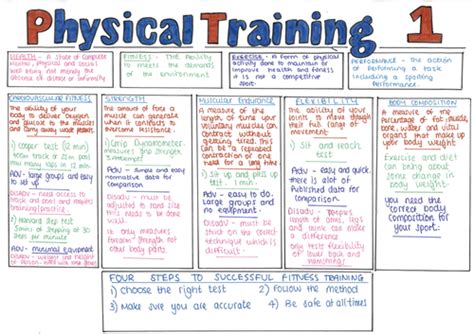 Physical Training 1
HEALTH - A state of complete
mental, physical and social
well being not merely the
absence of disease or infirmity
FITNESS - The ability
to meets the demands
of the environment
Exercise - A form of physical
activity done to maintain or
improve health and fitness
it is not a competitive
sport
PERFORMANCE - The action
of performing a task
including a sporting
Performance.
CARDIOVASCULAR FITNESS
the ability of your
body to deliver oxygen
and glucose to the muscles
and carry away waste
1) cooper test (2 min)
ADV - large groups and easy
to set up
Disadv - need access to
training
2) Harvard Step Test
5mins of stepping at 30
steps per minute
ADV - minimal equipment
Disadv - weight and height
STRENGTH
The amount of force a
muscle can generate
when it contracts to
overcome resistance.
1) Grip Dynamometer-
measures grip strength
Adv - Simple and easy
normative data for
comparison
Disadv - must be
adjusted to hand size
this needs to be done
well.
It only measures
forearm strength not
other body parts
Muscular Endurance
A measure of the
length of time your
voluntary muscles can
contract without
getting tired. this
can be a repeated
contraction or one
held for a long time
1) Sit up and press up
test - 1 min
Adv - easy to do.
Large groups and
no equipment.
Disadv - must be
sure to carry
out the correct
technique which is
difficult
FLEXIBILITY
the ability of your
joints to move though
their full range of
movement
1) Sit and reach
test
Adv - quick and
easy.
there is alot of
Published data for
comparison.
Disadv - People's
length of arms, legs
and trunk can make
a difference
only tests flexibility
of lower back and
hamstrings.
BODY COMPOSITION
A measure of the
percentage of fat, muscle,
bone, water and vital
organs that make up
body weight.
Exercise and diet
can bring about
some change in
body weight
You need the
'correct body
composition for
your sport'.
FOUR STEPS TO SUCCESSFUL FITNESS TRAINING
1) choose the right test
2) Follow the method
3) Make sure you are accurate
4) Be safe at all times